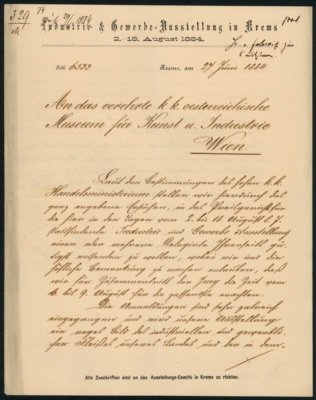 329
Industrie- & Gewerbe-Ausstellung in Krems
2.-18. August 1884.
Zahl 6533 Krems, am 27 Juni 1884
An das verehrte k. k. oesterreichische
Museum für Kunst u. Industrie
Wien
Laut den Bestimmungen des hohen k. k.
Handelsministerium stellen wir hiemit das
ganz ergebene Ersuchen, in das Preisgericht für
die hier in den Tagen vom 2. bis 18 August l. J.
stattfindende Industrie und Gewerbe Ausstellung
einen oder mehrere Delegirte
entsenden zu wollen, wobei wir uns die
höfliche Bemerkung zu machen erlauben, daß
wir für Zusammentritt der Jury die Zeit vom
6 bis 9 August für die
Die Anmeldungen sind sehr zahlreich
eingegangen und wird unsere Ausstellung
ein Bild des industriellen und gewerblichen
Fleißes unseres Landes und den in dem
Alle Zuschriften sind an das Ausstellungs-Comité in Krems zu richten.